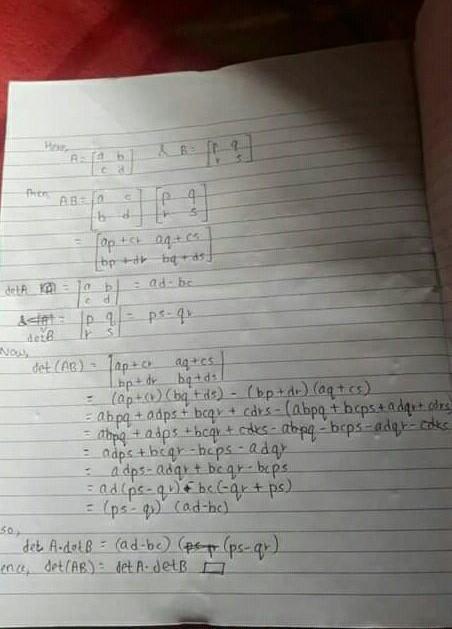 Here,
A = [a b & B = [p q
c d] r s]
Then,
AB = [a c [p q
b d] r s]
= [ap+cr aq+cs
bp+dr bq+ds]
detA = |a b = ad-bc
c d|
& = |p q = ps-qr
detB r s|
Now,
det(AB) = |ap+cr aq+cs
bp+dr bq+ds|
= (ap+cr)(bq+ds) - (bp+dr)(aq+cs)
= abpq + adps + bcqr + cdrs - (abpq + bcps + adqr + cdrs
= abpq + adps + bcqr + cdrs - abpq - bcps - adqr - cdrs
= adps + bcqr - bcps - adqr
= adps - adqr + bcqr - bcps
= ad(ps-qr) - bc(-qr + ps)
= (ps-qr) (ad-bc)
so,
det A·detB = (ad-bc) (ps-qr)
ence, det(AB) = detA·detB □